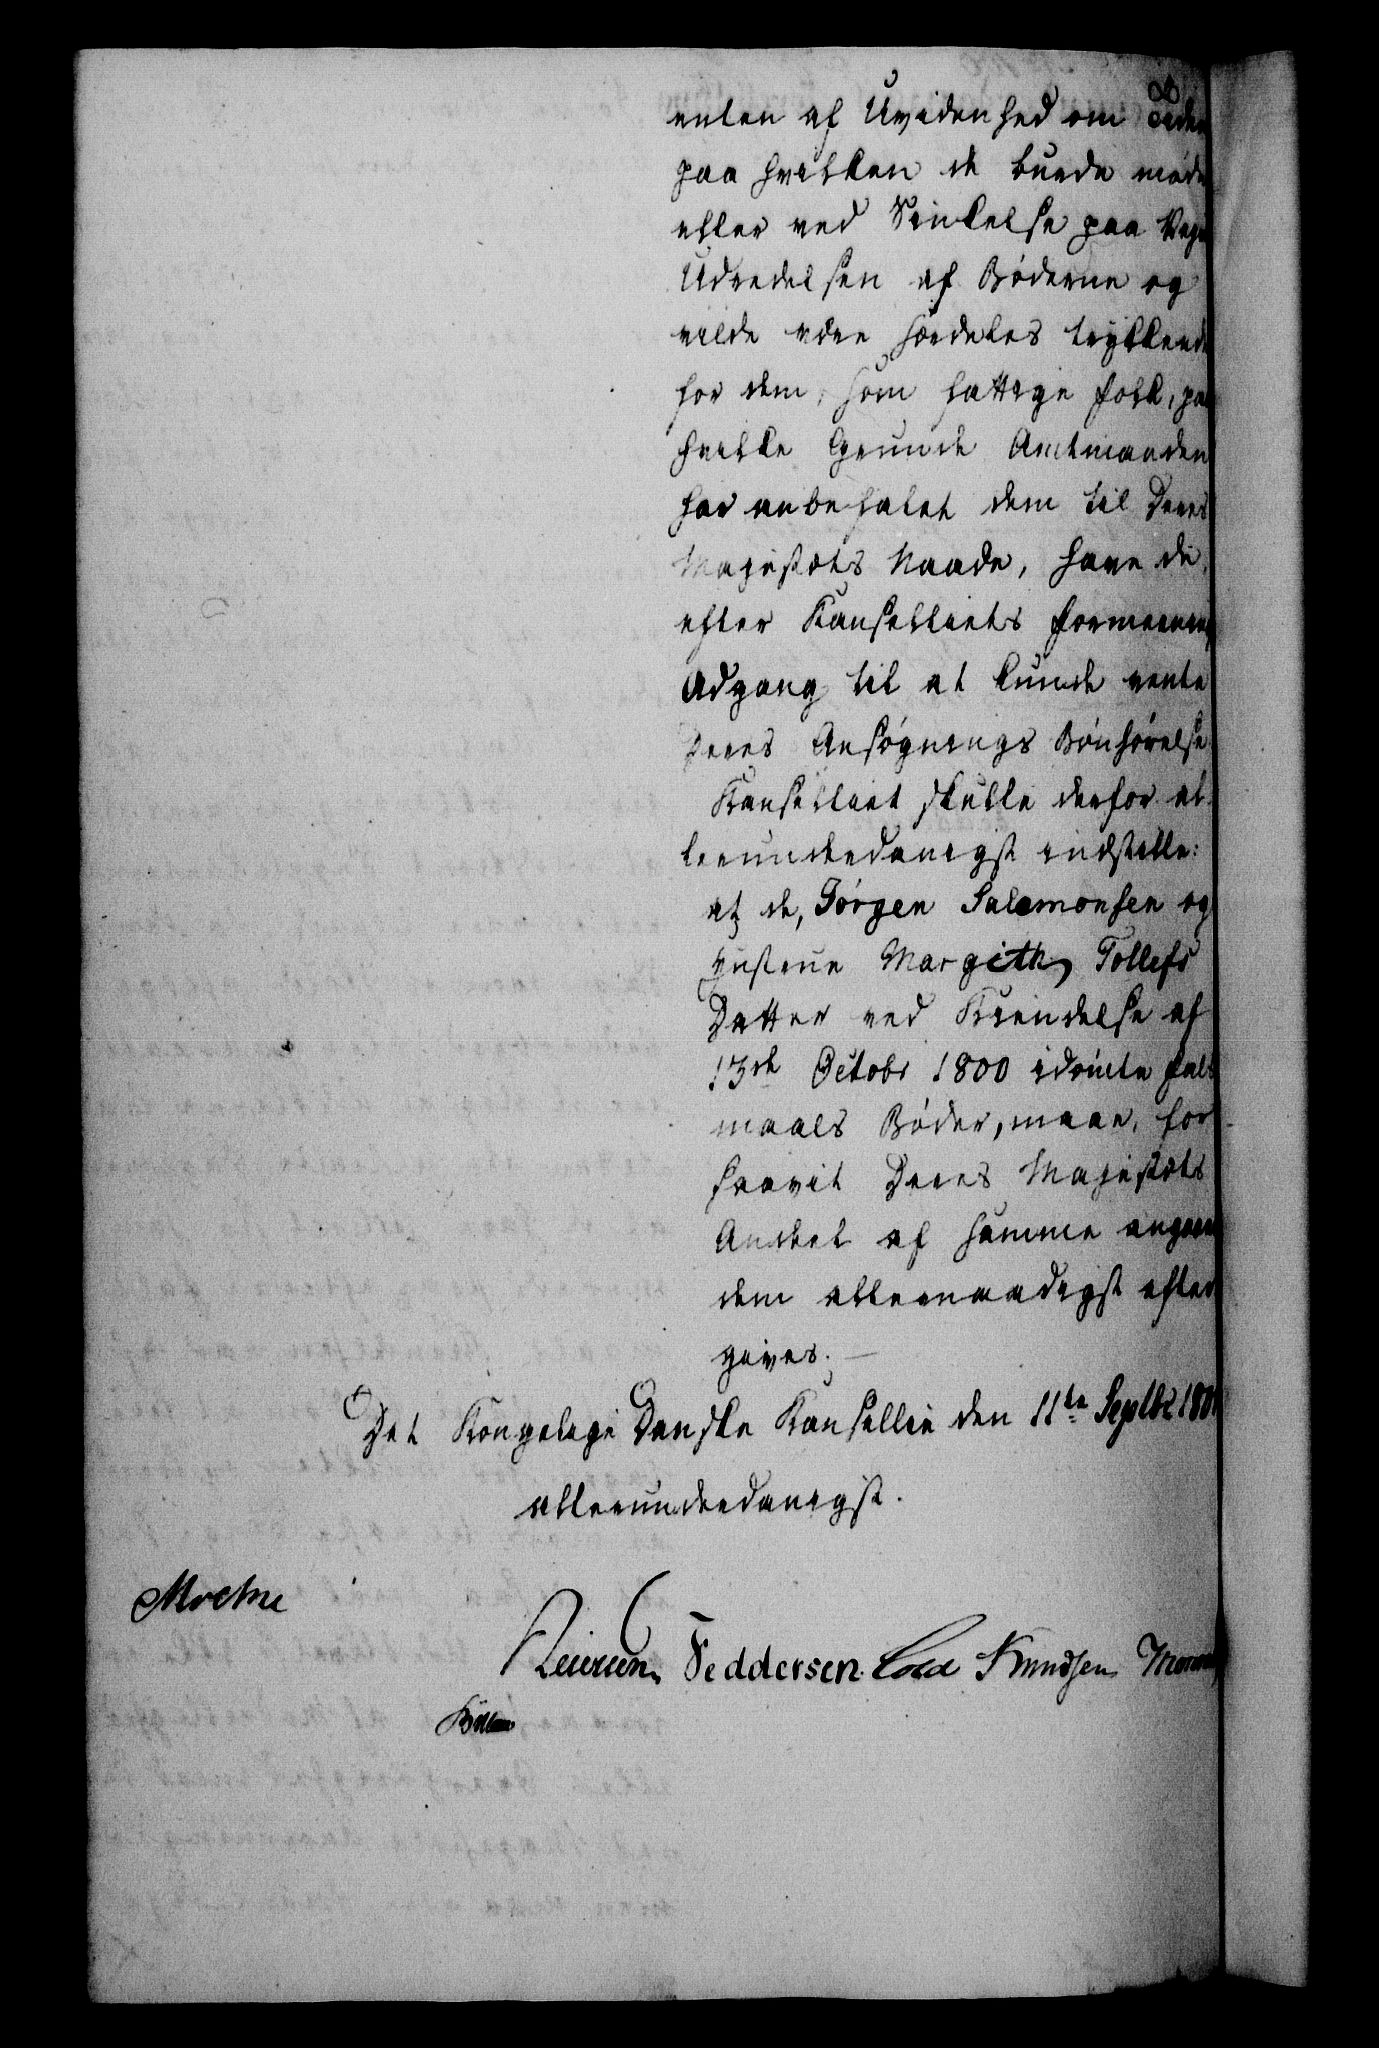 enten af Uvidenhed om Tiden
paa hvilken de burde møde
eller ved Sinkelse paa Veje
Udredelsen af Bøderne og
vilde være særdeles trykkende
for dem, som fattige Folk, paa
hvilke Grunde Amtmanden
har anbefalet dem til Deres
Majestæts Naade, have de,
efter Kanselliets Formeening
Adgang til at kunde vente
deres Ansøgnings Bønhørelse
Kanselliet skulle derfor al-
lerunderdanigst indstille:
at de, Jörgen Salemonsen og
Hustrue Margith Tollefs
Datter ved Kiendelse af
13de Octobr 1800 idömte Fals-
maals Bøder, maae, for
saavit Deres Majestæts
Andeel af samme angaaer
dem allernaadigst efter-
gives.
Det Kongelige Danske Kansellie den 11te Septbr 180
allerunderdanigst.
Moltke
Feddersen Cold Knudsen Monrad
Bülow